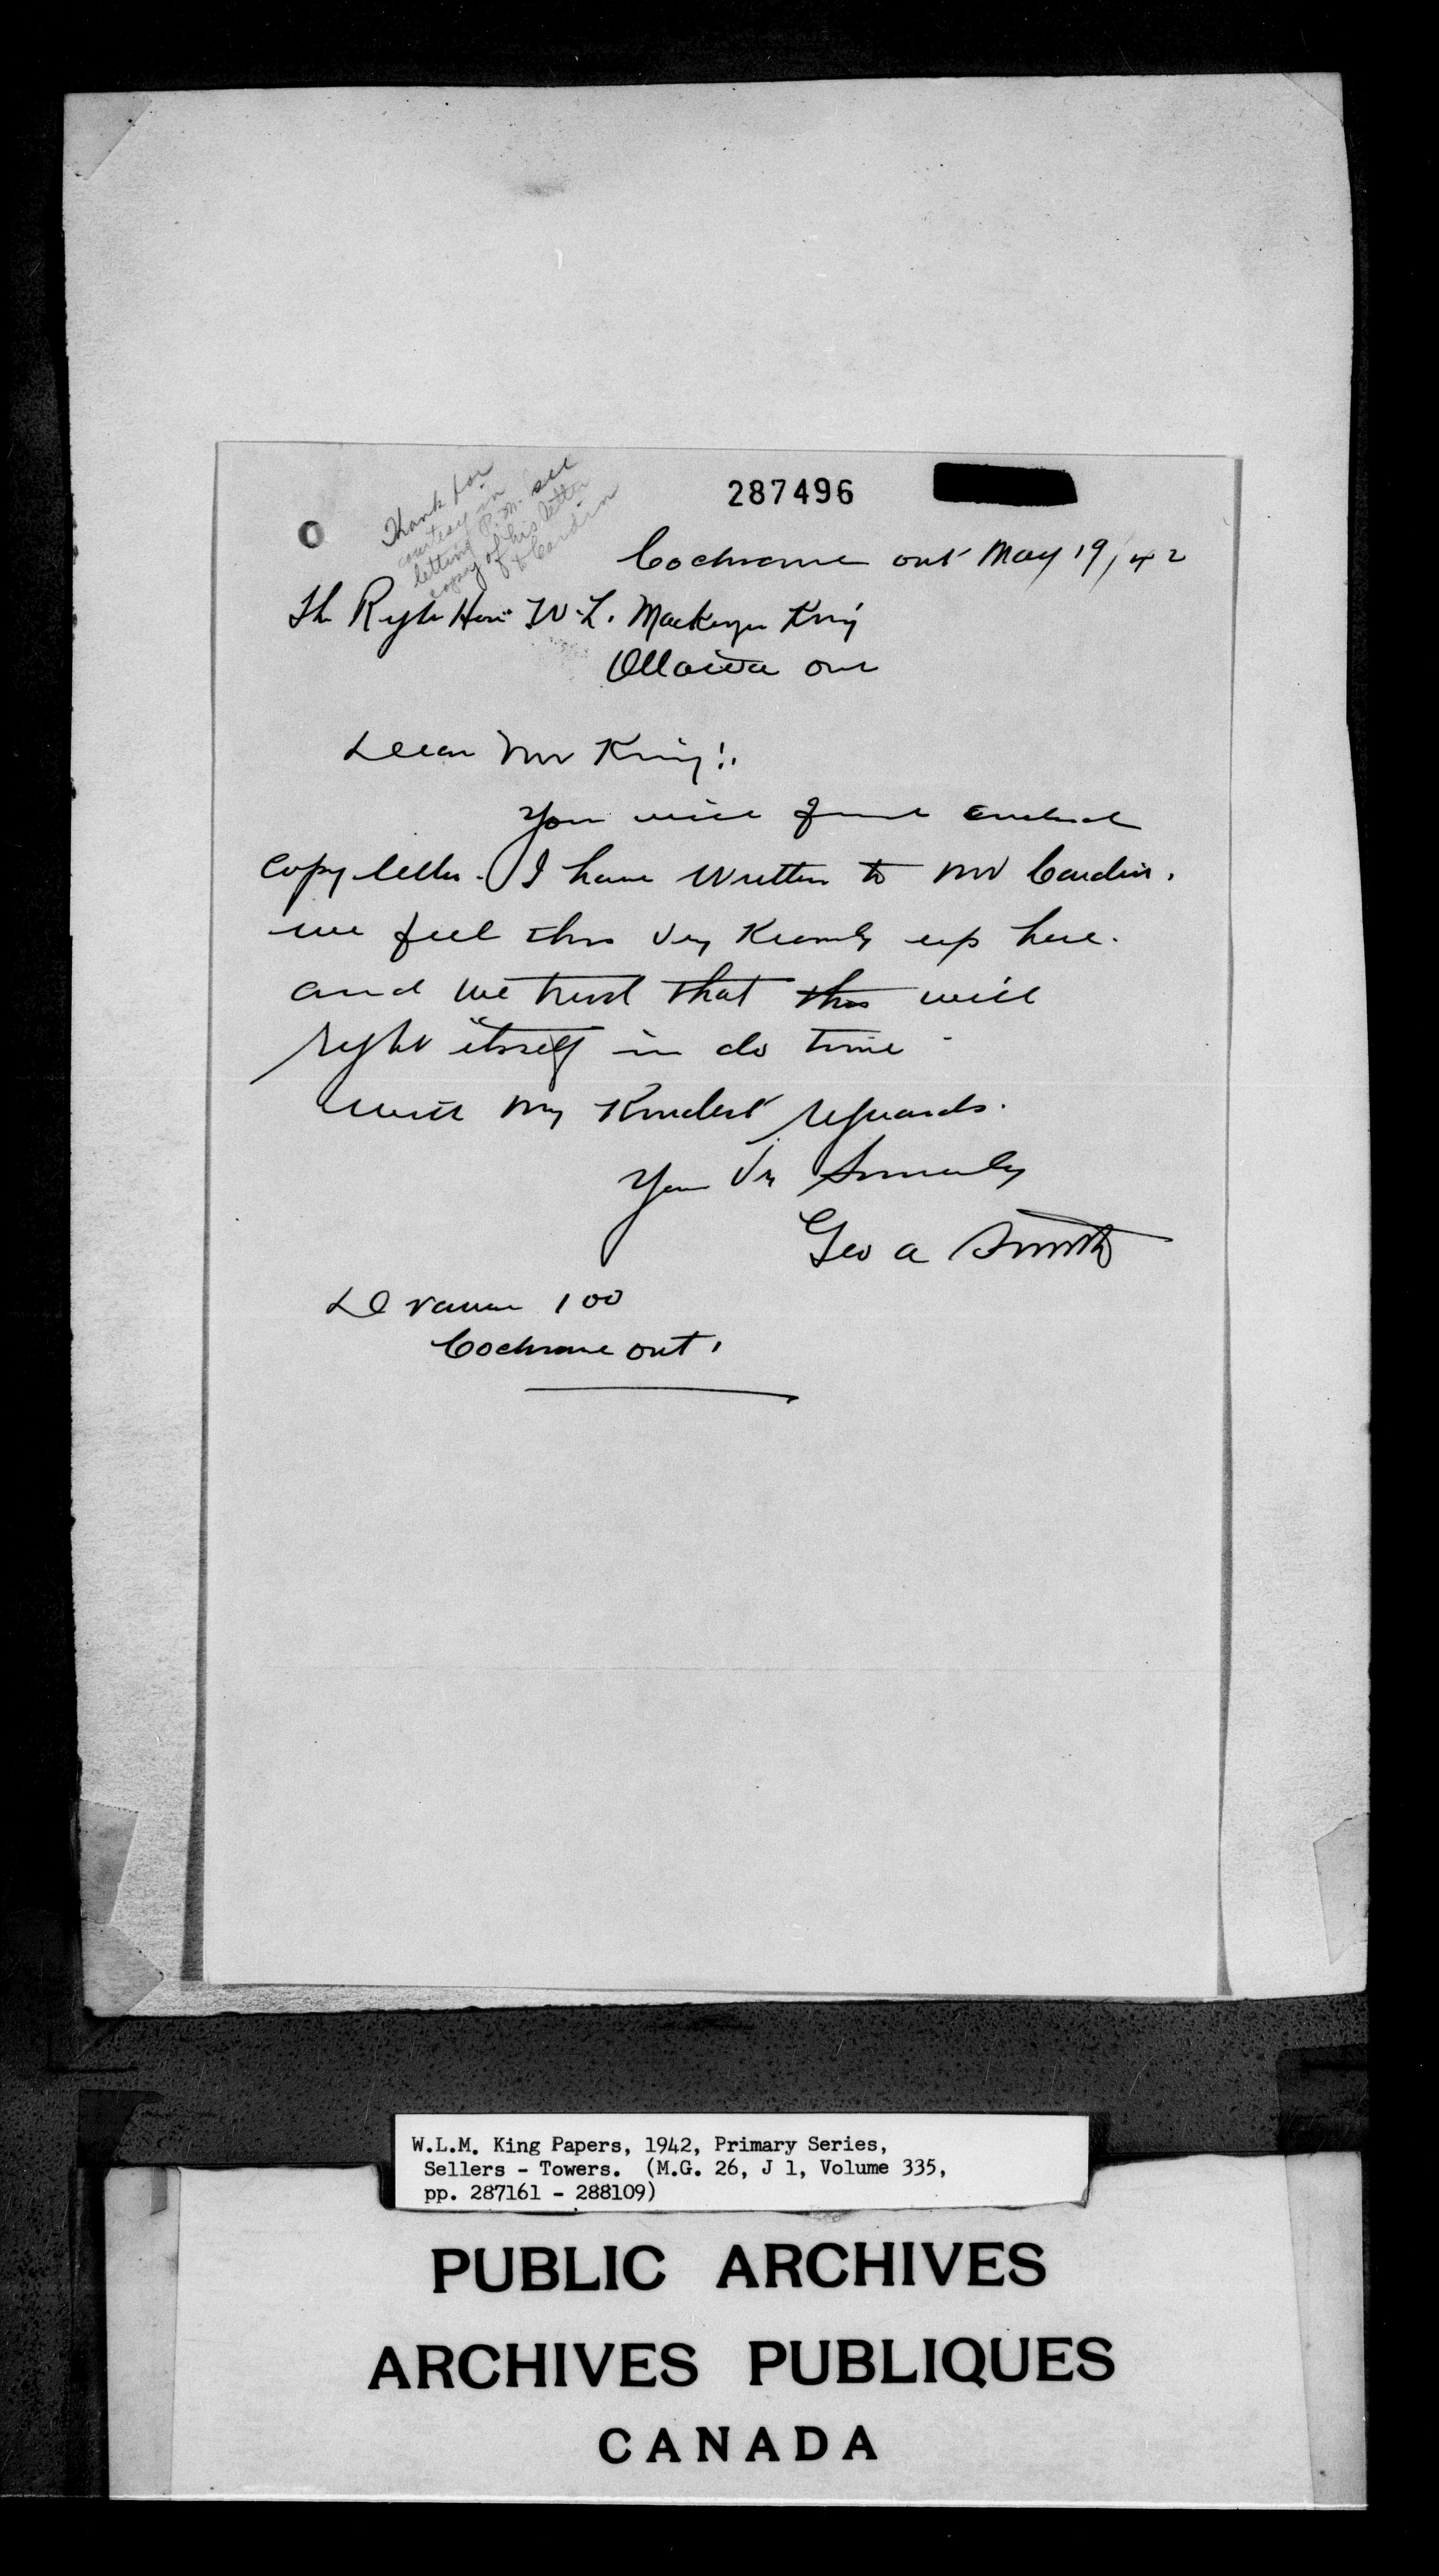 287496
Thank for
courtesy in
letting P.M. see
copy of his letter
to Cardin
Cochrane ont May 19/42
Th Right Hon W. L. Mackenzie King
Ottawa ont
Dear Mr King!.
You will find enclosed
copy letter. I have written to Mr Cardin.
we feel this very Keenly up here.
and we trust that this will
right itself in do time
with my Kindest reguards.
Your Vr Sincerely
Geo a Smith
100
Cochrane ont.
W.L.M. King Papers, 1942, Primary Series,
Sellers - Towers. (M.G. 26, J 1, Volume 335,
pp. 287161 - 288109)
PUBLIC ARCHIVES
ARCHIVES PUBLIQUES
CANADA